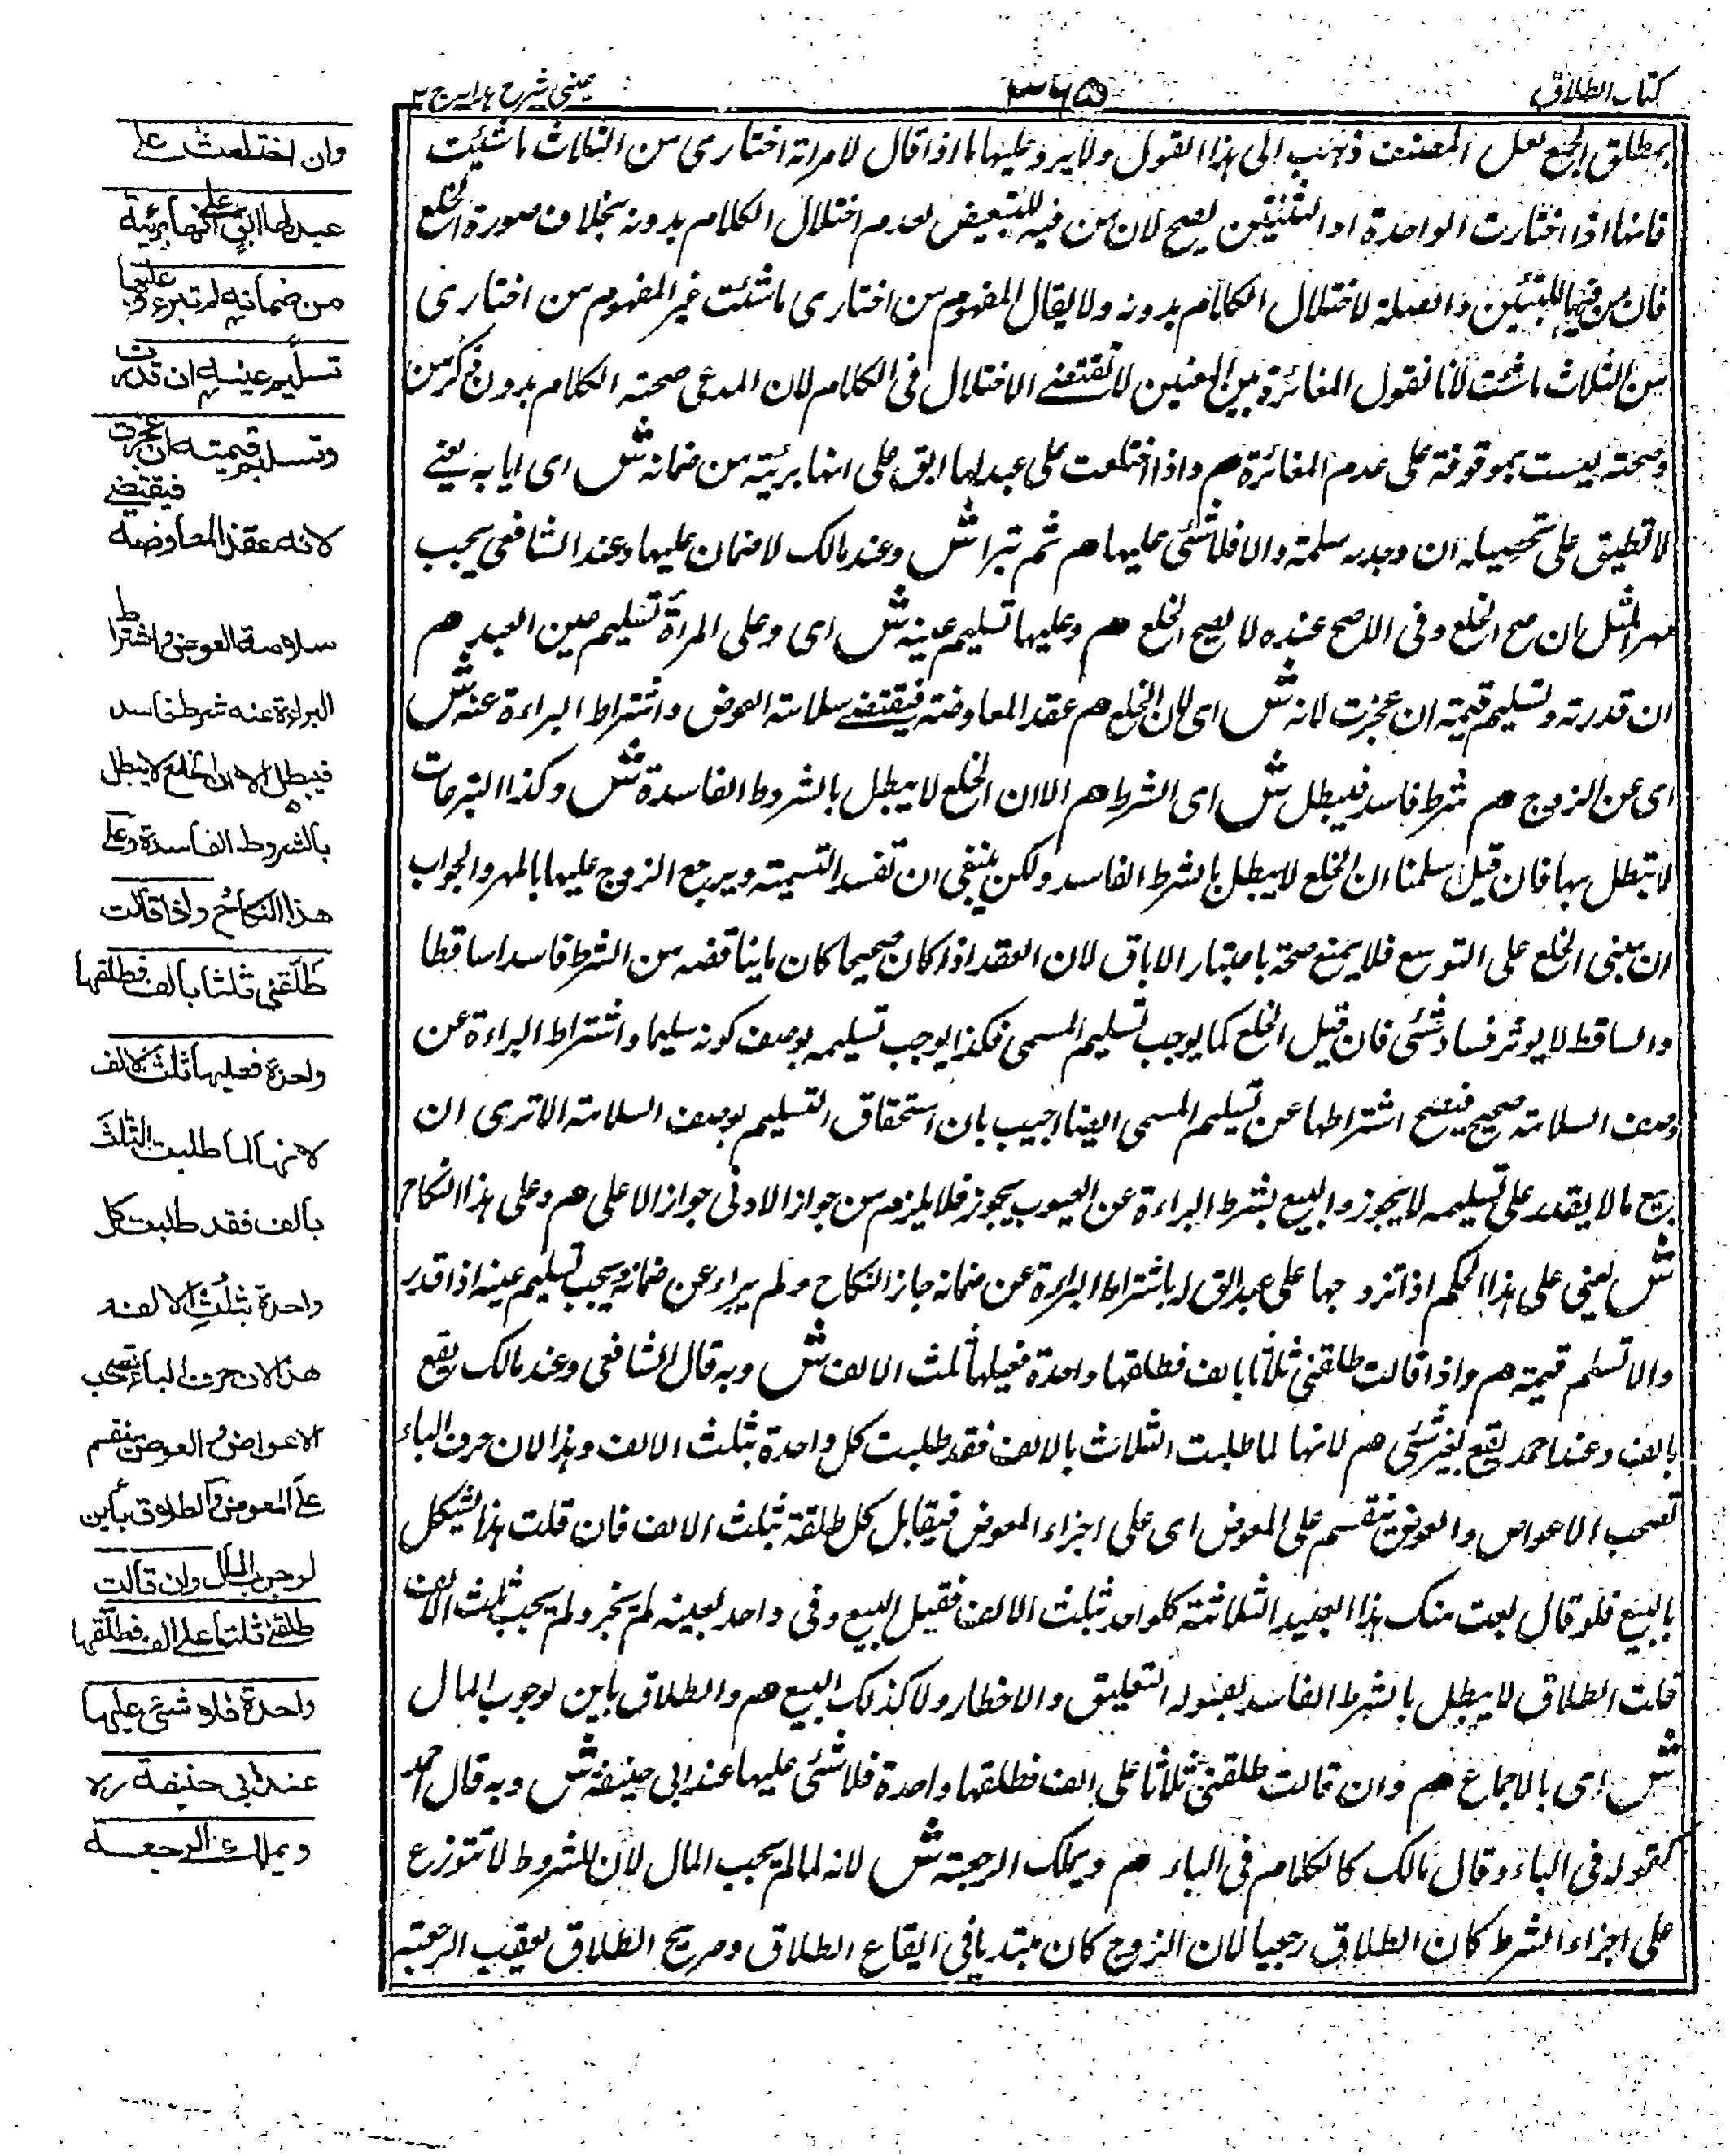 كتاب الطلاق
٣٦٥
عينى شرح هدايه ج ٢
بمطلق الجمع لعل المصنف ذهب الى هذا القول ولا يرد عليها ما اذا قال لامراته اختارى من الثلاث ما شئت
فانها اذا اختارت الواحدة او الثنتين يصح لان من فيه للتبعيض لعدم اختلال الكلام بدونه بخلاف صورة الخلع
فان من فيها للتبيين والصلة لاختلال الكلام بدونه ولا يقال المفهوم من اختارى ما شئت غير المفهوم من اختارى
من الثلاث ما شئت لانا نقول المغائرة بين المعنيين لا تقتضے الاختلال فى الكلام لان المدعى صحته الكلام بدون ذكر من
وصحته ليست بموقوفة على عدم المغائرة هم واذا اختلعت على عبد لها ابق على انها بريئة من ضمانه ش اى اباقه يعنے
لا تطيق على تحصيله ان وجدته سلمته والا فلا شئى عليها هم ثم تبرا ش وعند مالك لا ضمان عليها وعند الشافعى يجب
مهر المثل ان صح الخلع وفى الاصح عنده لا يصح الخلع هم وعليها تسليم عينه ش اى وعلى المرأة تسليم عين العبد هم
ان قدرته وتسليم قيمته ان عجزت لانه ش اى لان الخلع هم عقد المعاوضة فيقتضے سلامته العوض واشتراط البراءة عنه ش
اى عن الزوج هم شرط فاسد فيبطل ش اى الشرط هم الا ان الخلع لا يبطل بالشروط الفاسدة ش وكذا التبرعات
لا تبطل بها فان قيل سلمنا ان الخلع لا يبطل بالشرط الفاسد ولكن ينبغى ان تفسد التسمية ويرجع الزوج عليها بالمهر والجواب
ان مبنى الخلع على التوسع فلا يمنع صحته باعتبار الاباق لان العقد اذا كان صحيحا كان ما يناقضه من الشرط فاسدا ساقطا
والساقط لا يوثر فساد شئى فان قيل الخلع كما يوجب تسليم المسمى فكذا يوجب تسليمه بوصف كونه سليما واشتراط البراءة عن
وصف السلامة صحيح فيصح اشتراطها عن تسليم المسمى ايضا اجيب بان استحقاق التسليم بوصف السلامته الا ترى ان
بيع ما لا يقدر على تسليمه لا يجوز والبيع بشرط البراءة عن العيوب يجوز فلا يلزم من جواز الادنى جواز الاعلى هم وعلى هذا النكاح
ش يعنى على هذا الحكم اذا تزوجها على عبد ابق له باشتراط البراءة عن ضمانه جاز النكاح ولم يبراء عن ضمانه ويجب تسليم عينه اذا قدر
والا تسلم قيمته هم واذا قالت طلقنى ثلاثا بالف فطلقها واحدة فعليها ثلث الالف ش وبه قال الشافعى وعند مالك يقع
بالف وعند احمد يقع بغير شئى هم لانها لما طلبت الثلاث بالالف فقد طلبت كل واحدة بثلث الالف وهذا لان حرف الباء
تصحب الاعواض والعوض ينقسم على المعوض اى على اجزاء المعوض فيقابل كل طلقة ثلث الالف فان قلت هذا يشكل
بالبيع فلو قال بعت منك هذا العبيد الثلاثة كلواحد بثلث الالف فقبل البيع وفى واحد بعينه لم يجز ولم يجب ثلث الالف
قلت الطلاق لا يبطل بالشرط الفاسد لقبوله التعليق والاخطار ولا كذلك البيع هم والطلاق باين لوجوب المال
ش اى بالاجماع هم وان قالت طلقنى ثلاثا على الف فطلقها واحدة فلا شئى عليها عند ابى حنيفة ش وبه قال احمد
كقوله فى الباء وقال مالك كالكلام فى الباء هم ويملك الرجعة ش لانه لما لم يجب المال لان المشروط لا تتوزع
على اجزاء الشرط كان الطلاق رجعيا لان الزوج كان مبتديا فى ايقاع الطلاق وصريح الطلاق يعقب الرجعته
وان اختلعت على
عبد لها ابق على انها بريئة
من ضمانه لم تبرء وعليها
تسليم عينه ان قدرت
وتسليم قيمته ان عجزت
لانه عقد المعاوضه فيقتضے
سلامة العوض واشتراط
البراءة عنه شرط فاسد
فيبطل الا ان الخلع لا يبطل
بالشروط الفاسدة وعلے
هذا النكاح واذا قالت
طلقنى ثلثا بالف فطلقها
واحدة فعليها ثلث الالف
لانها لما طلبت الثلث
بالف فقد طلبت كل
واحدة بثلث الالف و
هذا لان حرف الباء تصحب
الاعواض والعوض ينقسم
على المعوض والطلاق بائن
لوجوب المال وان قالت
طلقنے ثلثا على الف فطلقها
واحدة فلا شئ عليها
عند ابى حنيفة رح
ويملك الرجعة